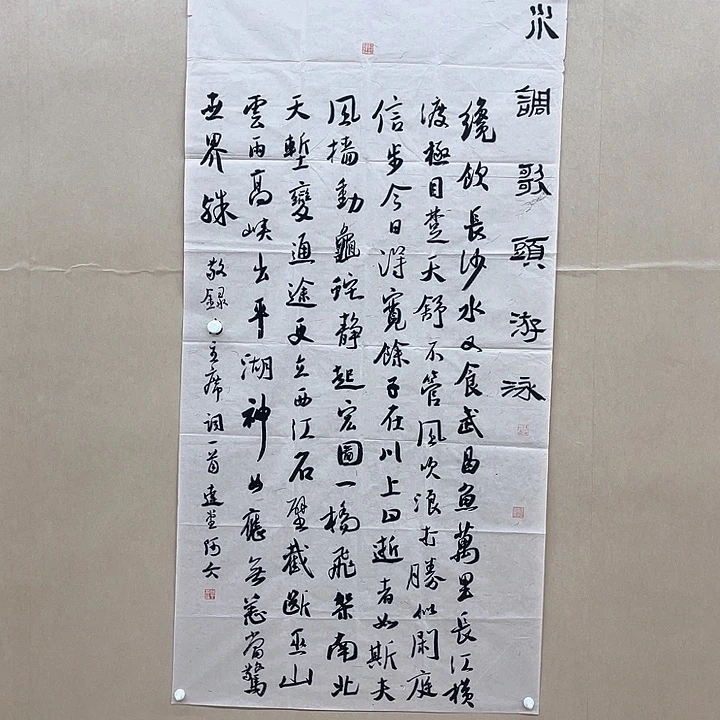 水調歌頭游泳
纔飲長沙水又食武昌魚萬里長江橫
渡極目楚天舒不管風吹浪打勝似閑庭
信步今日得寬餘子在川上曰逝者如斯夫
風檣動龜蛇靜起宏圖一橋飛架南北
天塹變通途更立西江石壁截斷巫山
雲雨高峽出平湖神女應無恙當驚
世界殊敬録主席詞一首